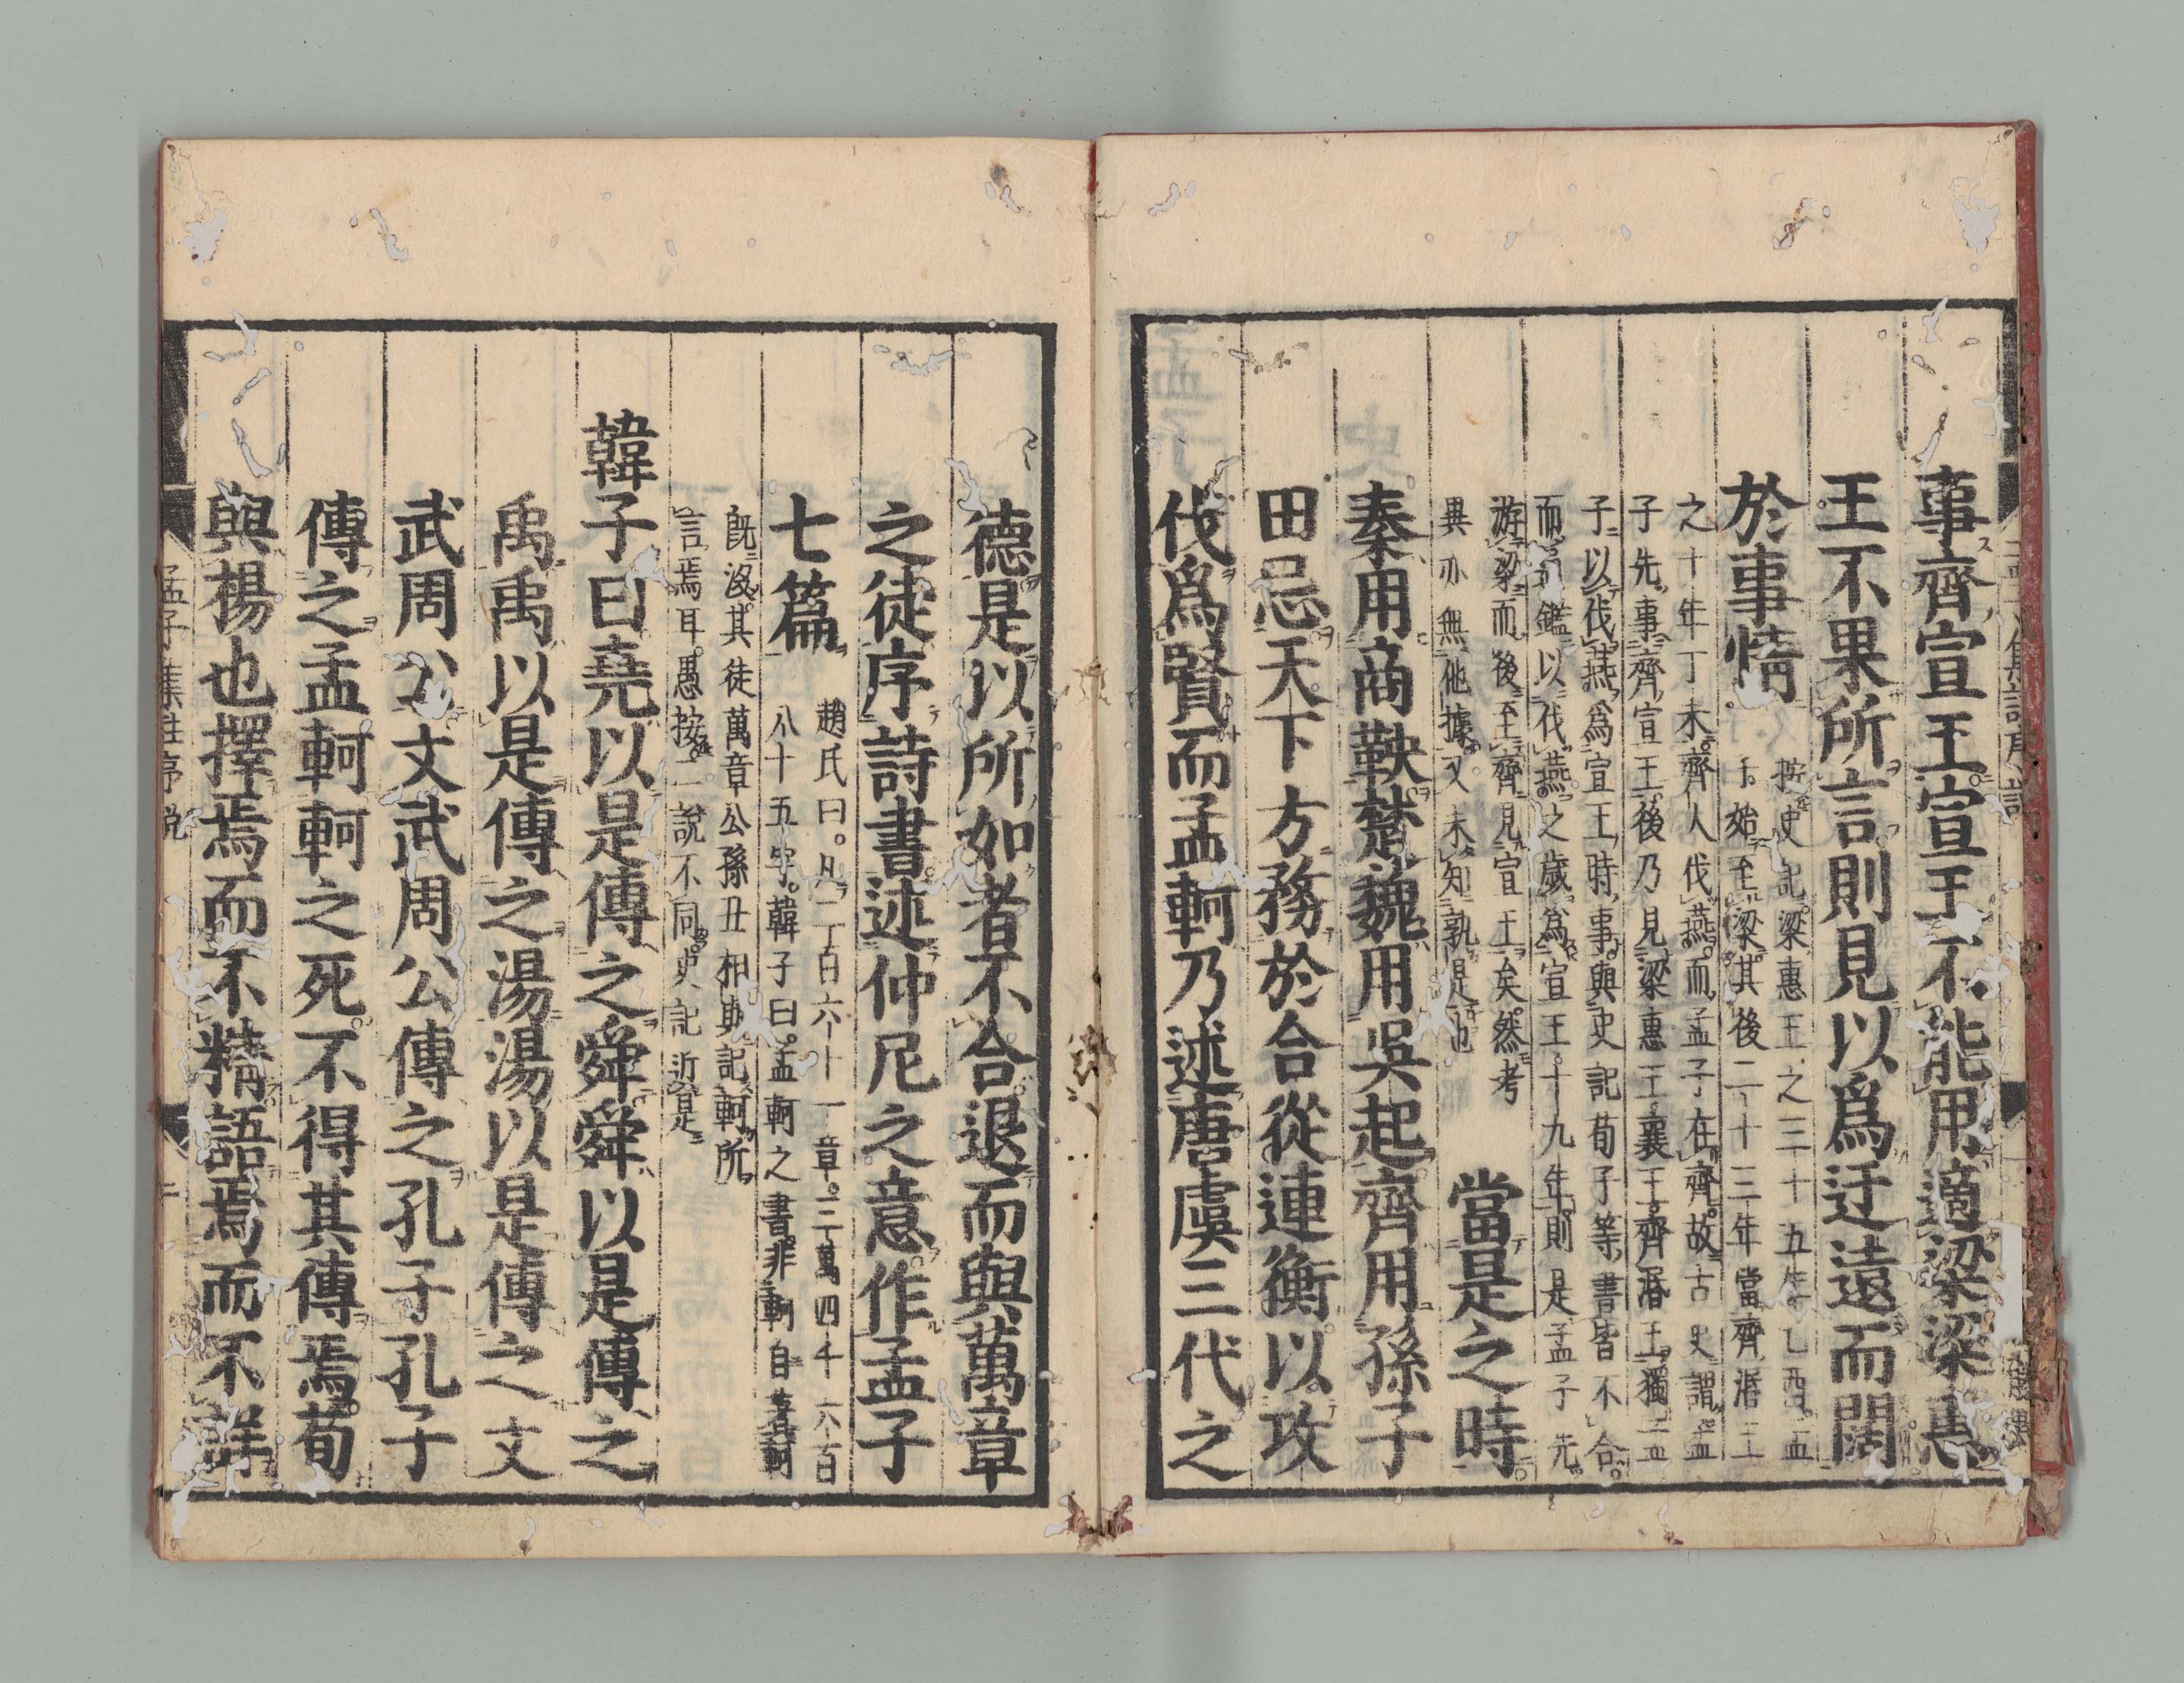 事齊宣王宣王不能用適梁梁惠
王不果所言則見以爲迂遠而闊
於事情
按史記梁惠王之三十五年乙酉孟
子始至梁其後二十三年當齊湣王
之十年丁未齊人伐燕而孟子在齊故古史謂孟
子先事齊宣王後乃見梁惠王襄王齊湣王獨孟
子以伐燕爲宣王時事與史記荀子等書皆不合
而通鑑以伐燕之歲爲宣王十九年則是孟子先
游梁而後至齊見宣王矣然考
異亦無他據又未知孰是也
當是之時
秦用商鞅楚魏用吳起齊用孫子
田忌天下方務於合從連衡以攻
伐爲賢而孟軻乃述唐虞三代之
德是以所如者不合退而與萬章
之徒序詩書述仲尼之意作孟子
七篇
趙氏曰凡二百六十一章三萬四千六百
八十五字韓子曰孟軻之書非軻自著軻
旣沒其徒萬章公孫丑相與記軻所
言焉耳愚按二說不同史記近是
韓子曰堯以是傳之舜舜以是傳之
禹禹以是傳之湯湯以是傳之文
武周公文武周公傳之孔子孔子
傳之孟軻軻之死不得其傳焉荀
與楊也擇焉而不精語焉而不詳
孟子集註序說